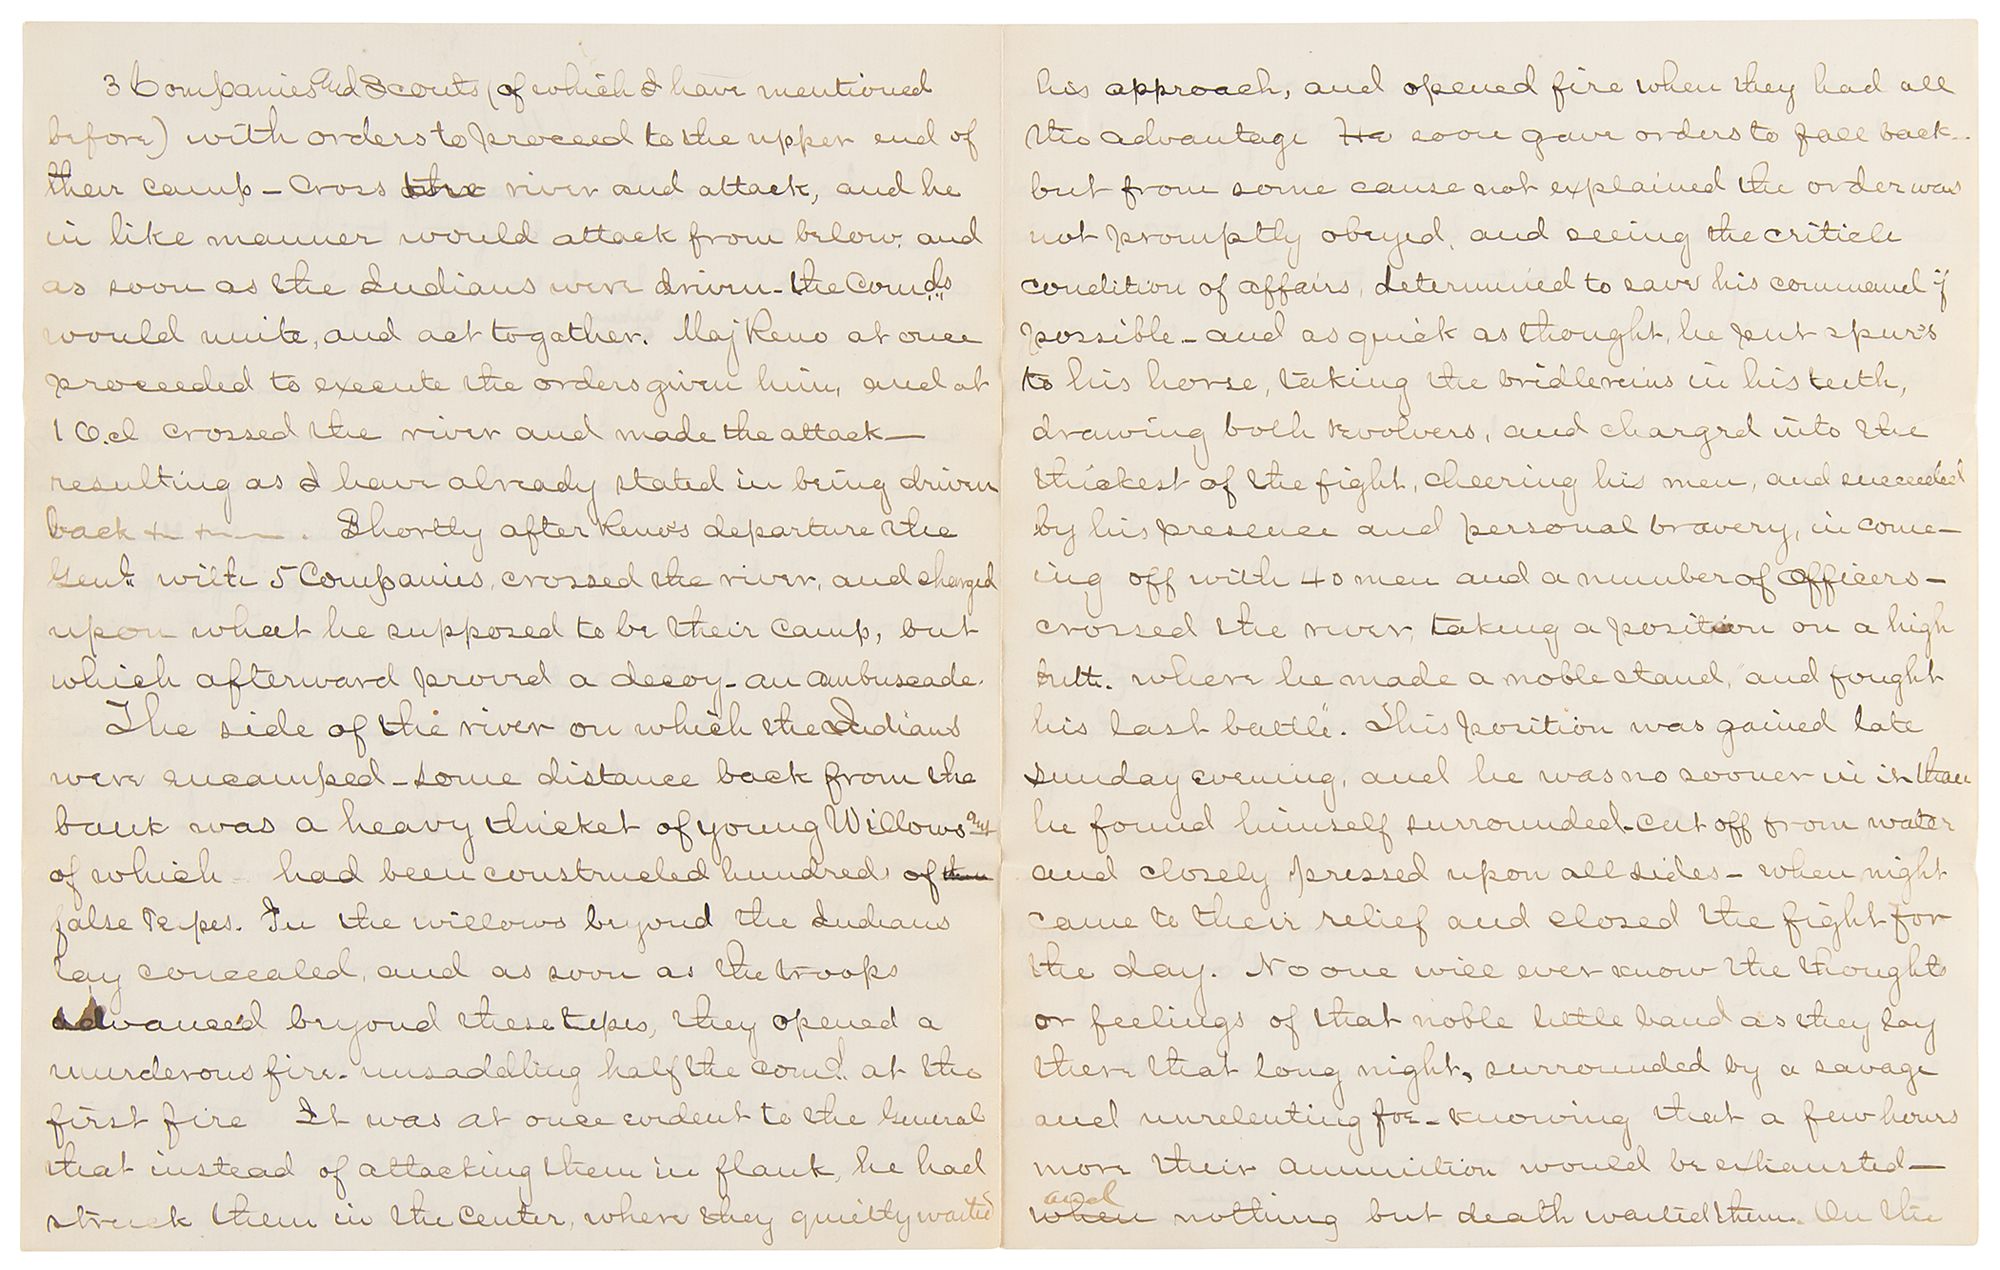 3 Companies and Scouts (of which I have mentioned
before) with orders to proceed to the upper end of
their camp - cross the river and attack, and he
in like manner would attack from below, and
as soon as the Indians were driven - the Comds
would unite, and act together. Maj Reno at once
proceeded to execute the orders given him, and at
1 O.cl crossed the river and made the attack —
resulting as I have already stated in being driven
back + + — — . Shortly after Reno's departure the
Genl. with 5 Companies, crossed the river, and charged
upon what he supposed to be their camp, but
which afterward proved a decoy - an ambuscade.
The side of the river on which the Indians
were encamped - some distance back from the
bank was a heavy thicket of young Willows out
of which had been constructed hundreds of
false Tepes. In the willows beyond the Indians
lay concealed, and as soon as the troops
advanced beyond these tepes, they opened a
murderous fire - unsaddling half the comd. at the
first fire It was at once evident to the General
that instead of attacking them in flank, he had
struck them in the center, where they quietly waited
his approach, and opened fire when they had all
the advantage He soon gave orders to fall back -
but from some cause not explained the order was
not promptly obeyed, and seeing the criticle
condition of affairs, determined to save his command if
possible - and as quick as thought, he put spur's
to his horse, taking the bridlereins in his teeth,
drawing both revolvers, and charged into the
thickest of the fight, cheering his men, and succeeded
by his presence and personal bravery, in come-
ing off with 40 men and a number of Officers -
crossed the river, taking a position on a high
butte. where he made a noble stand, "and fought
his last battle". This position was gained late
Sunday evening, and he was no sooner in it than
he found himself surrounded - cut off from water
and closely pressed upon all sides - when night
came to their relief and closed the fight for
the day. No one will ever know the thoughts
or feelings of that noble little band as they lay
there that long night, surrounded by a savage
and unrelenting foe - knowing that a few hours
more their ammunition would be exhausted —
and
when nothing but death waited them. On the